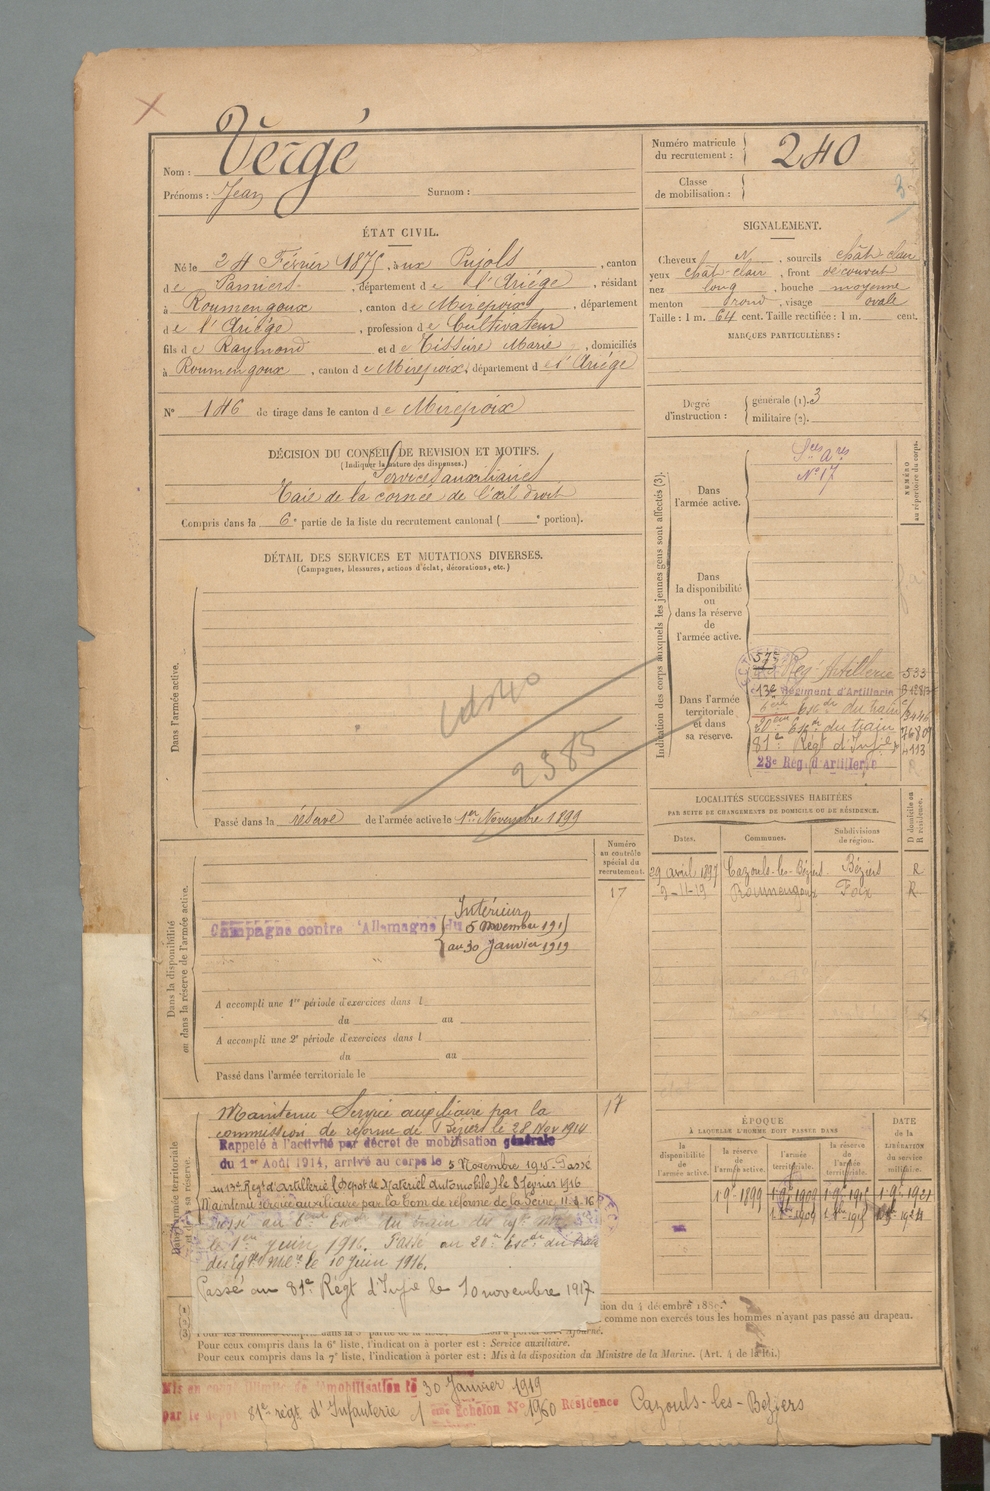 Vergé
Nom :
Prénoms : Jean Surnom :
Numéro matricule du recrutement : 240
Classe de mobilisation :
ÉTAT CIVIL.
Né le 24 Février 1875, aux Pujols, canton
de Pamiers, département de l'Ariége, résidant
à Roumengoux, canton de Mirepoix, département
de l'Ariège, profession de Cultivateur
fils de Raymond et de Tisseire Marie, domiciliés
à Roumengoux, canton de Mirepoix, département de l'Ariége
N° 146 de tirage dans le canton de Mirepoix
SIGNALEMENT.
Cheveux N, sourcils chât-clair
yeux chât-clair, front découvert
nez long, bouche moyenne
menton rond, visage ovale
Taille : 1 m. 64 cent. Taille rectifiée : 1 m. cent.
MARQUES PARTICULIÈRES :
Degré d'instruction : générale (1). 3
militaire (2).
DÉCISION DU CONSEIL DE REVISION ET MOTIFS.
(Indiquer la nature des dispenses.)
Services auxiliaires
Taie de la cornée de l'œil droit
Compris dans la 6e partie de la liste du recrutement cantonal ( e portion).
DÉTAIL DES SERVICES ET MUTATIONS DIVERSES.
(Campagnes, blessures, actions d'éclat, décorations, etc.)
Dans l'armée active.
2385
Passé dans la réserve de l'armée active le 1er Novembre 1899
Indication des corps auxquels les jeunes gens sont affectés (3).
NUMÉRO au répertoire du corps.
Dans l'armée active.
N° 17
Dans la disponibilité ou dans la réserve de l'armée active.
Dans l'armée territoriale et dans sa réserve.
57e Reg. Artillerie 533
13e Régiment d'Artillerie
6ème Escon du train
20ème Escon du train
81e Régt d'Infie 4113
23e Rég. d'Artillerie R
LOCALITÉS SUCCESSIVES HABITÉES
PAR SUITE DE CHANGEMENTS DE DOMICILE OU DE RÉSIDENCE.
Dates. Communes. Subdivisions de région. D domicile ou R résidence.
29 avril 1897 Cazouls-les-Béziers Béziers R
Roumengoux Foix R
Numéro au contrôle spécial du recrutement.
17
Dans la disponibilité ou dans la réserve de l'armée active.
Intérieur
Campagne contre l'Allemagne du 5 Novembre 1915
au 30 Janvier 1919
A accompli une 1re période d'exercices dans l
du au
A accompli une 2e période d'exercices dans l
du au
Passé dans l'armée territoriale le
Maintenu Service auxiliaire par la 17
commission de réforme de Béziers le 28 Nov 1914
Rappelé à l'activité par décret de mobilisation générale
du 1er Août 1914, arrivé au corps le 5 Novembre 1915. Passé
au 13e Régt d'Artillerie (Dépot de Matériel Automobile) le 8 février 1916
Maintenu service auxiliaire par la Com de réforme de la Seine 11.4.16
Passé au 6ème Escon du train des
le 1er juin 1916. Passé au 20e Escon du train
des Eqges Milres le 10 juin 1916.
Passé au 81e Régt d'Infie le 10 novembre 1917
ÉPOQUE
À LAQUELLE L'HOMME DOIT PASSER DANS
la disponibilité de l'armée active. la réserve de l'armée active. l'armée territoriale. la réserve de l'armée territoriale.
DATE de la LIBÉRATION du service militaire.
1.9.1899 1.9.1909 1.9.1915 1.9.1921
tion du 4 décembre
comme non exercés tous les hommes n'ayant pas passé au drapeau.
Pour ceux compris dans la 6e liste, l'indication à porter est : Service auxiliaire.
Pour ceux compris dans la 7e liste, l'indication à porter est : Mis à la disposition du Ministre de la Marine. (Art. 4 de la loi.)
Mis en congé illimité de démobilisation le 30 Janvier 1919
par le dépôt 81e régt d'Infanterie 1 ème Echelon N° 1960 Résidence Cazouls-les-Béziers